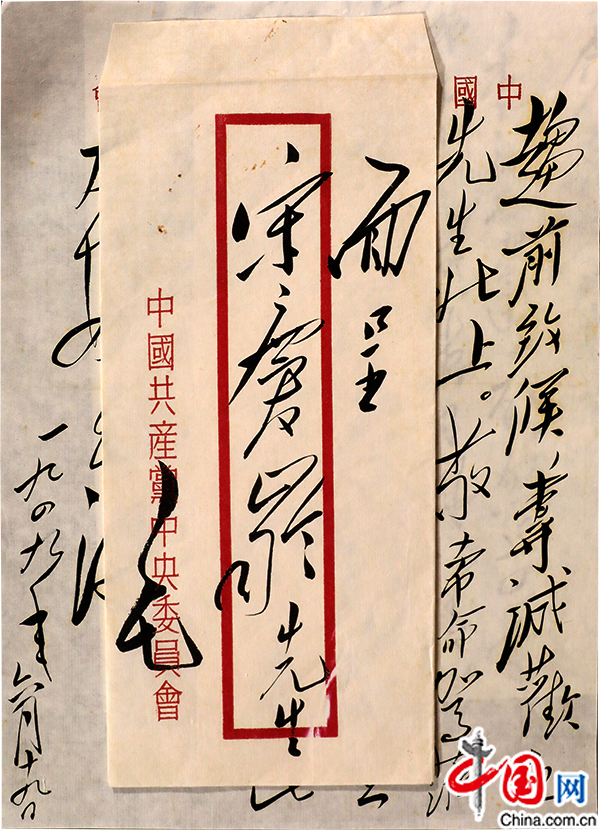 中國
趨前致候，專誠歡
先生北上。敬希命駕莅
面呈
宋慶齡先生
毛
中國共產黨中央委員會
一九四九年六月十九日
中国网
China.com.cn